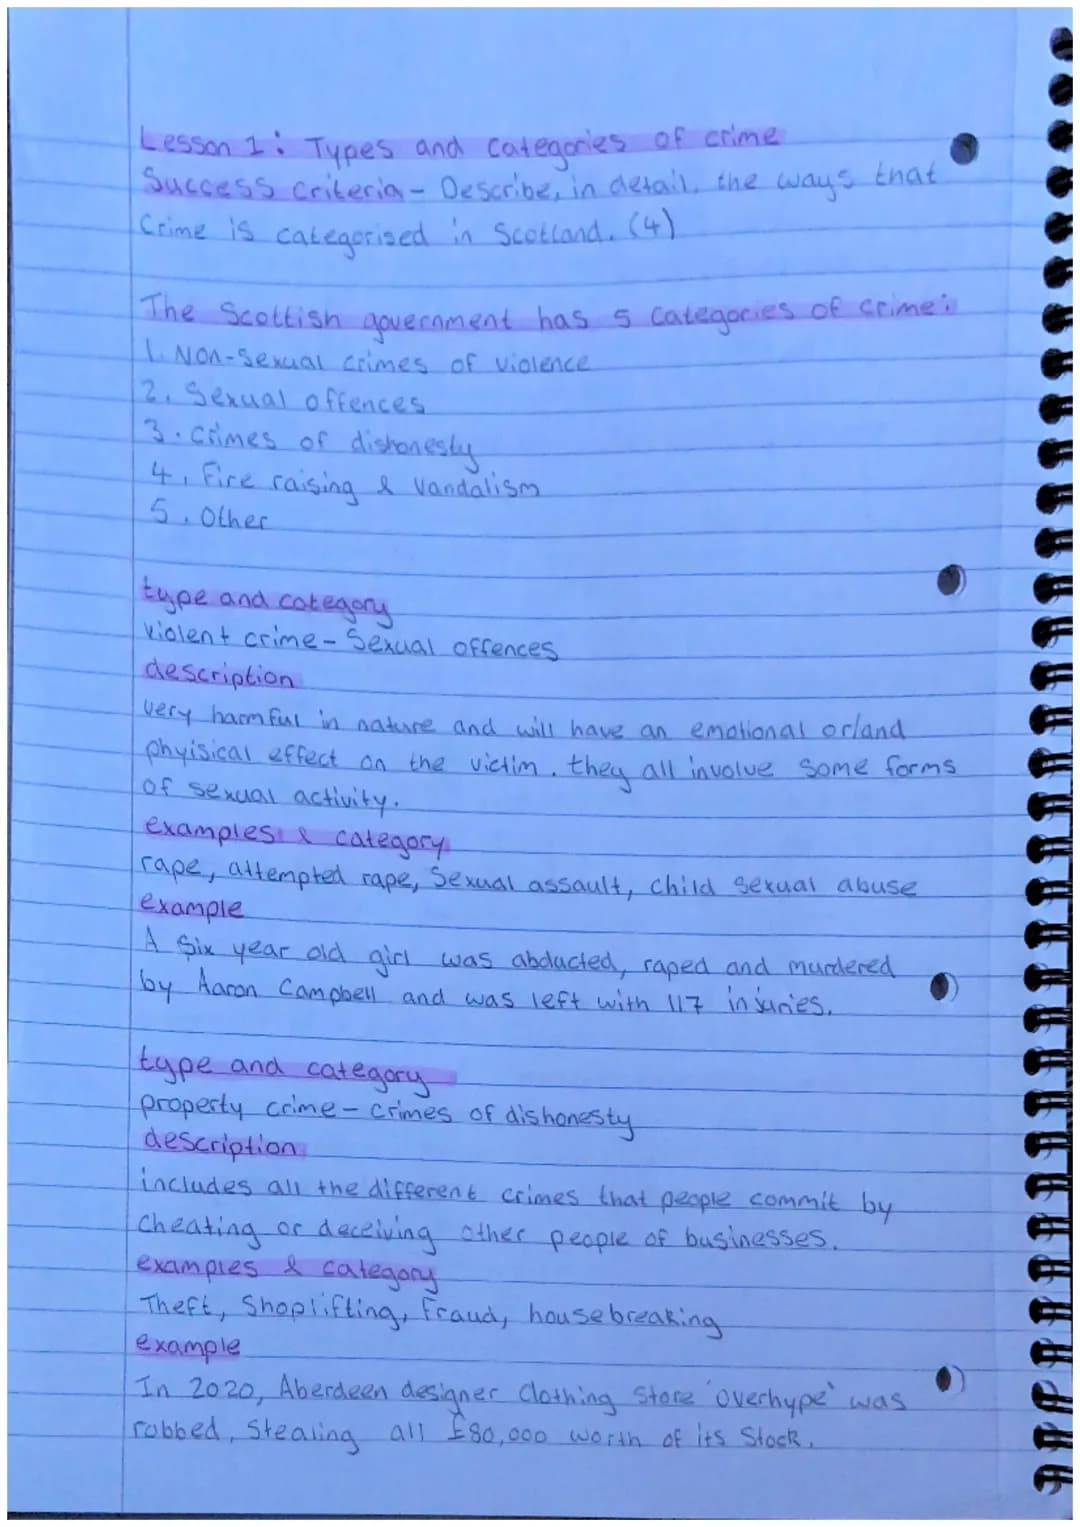 Lesson 1: Types and categories of crime
Success criteria - Describe, in detail, the ways that
Crime is categorised in Scotland. (4)
The Scottish government has 5 categories of crime:
1. Non-sexual crimes of violence
2. Sexual offences
3. crimes of dishonesty
4. Fire raising & Vandalism
5. Other
type and category
Violent crime - Sexual offences
description
very harmful in nature and will have an emotional or/and
phyisical effect on the victim. they all involve some forms
of sexual activity.
examples & category
rape, attempted rape, Sexual assault, child sexual abuse
example
A six year old girl was abducted, raped and murdered
by Aaron Campbell and was left with 117 injuries.
type and category
property crime - crimes of dishonesty
description
includes all the different crimes that people commit by
cheating or deceiving other people of businesses.
examples & category
Theft, Shoplifting, fraud, housebreaking
example
In 2020, Aberdeen designer clothing store 'overhype' was
robbed, Stealing all £80,000 worth of its Stock.